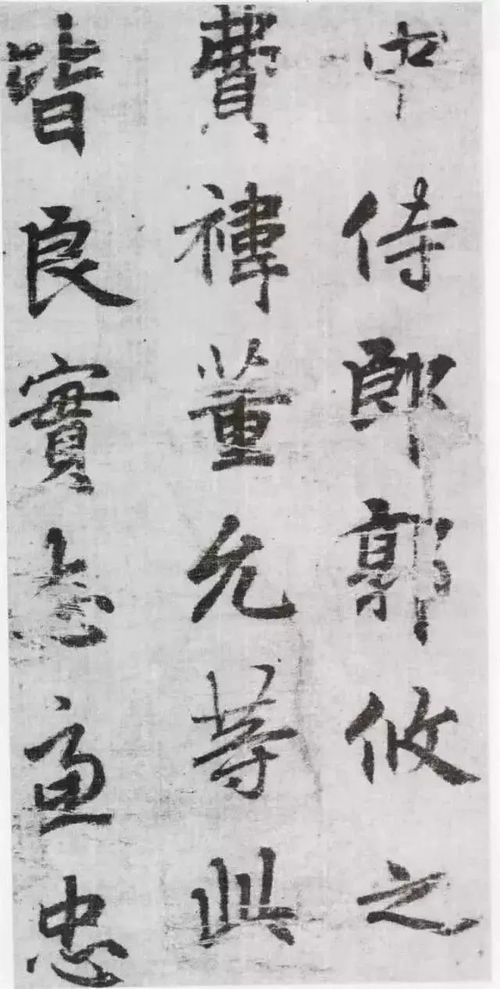 中侍郎郭攸之
費褘董允等此
皆良實志慮忠